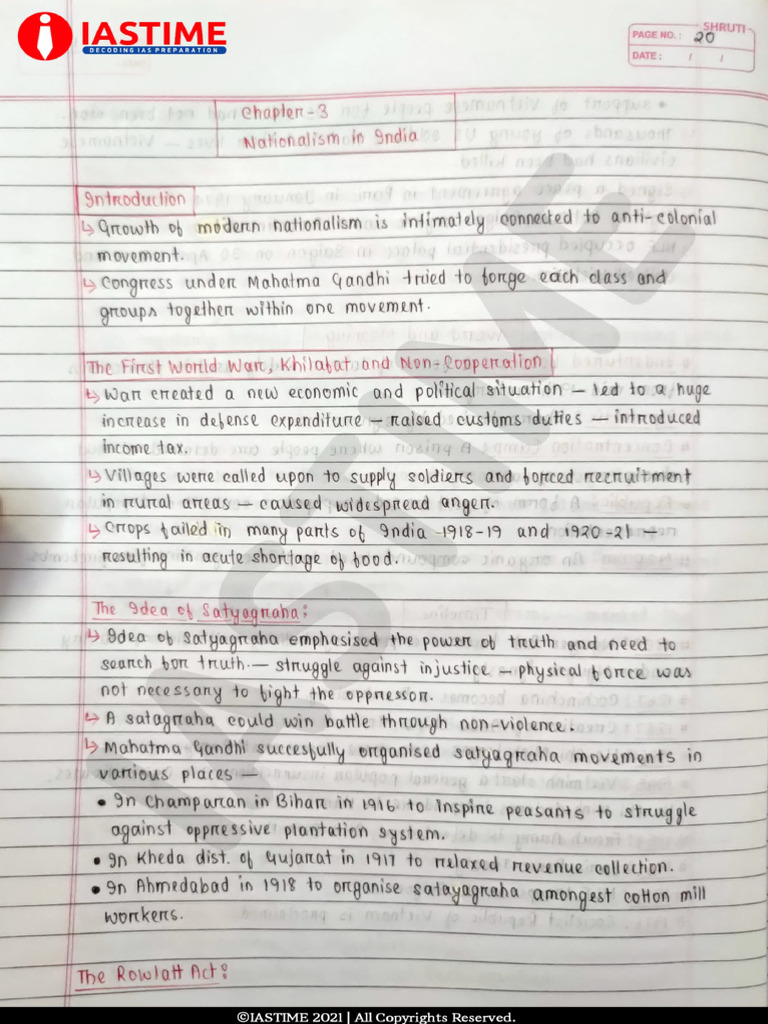 IASTIME
DECODING IAS PREPARATION
SHRUTI
PAGE NO.: 20
DATE: / /
Chapter-3
Nationalism in India
Introduction
↳ Growth of modern nationalism is intimately connected to anti-colonial
movement.
↳ Congress under Mahatma Gandhi tried to forge each class and
groups together within one movement.
The First World War, Khilafat and Non-Cooperation
↳ War created a new economic and political situation — led to a huge
increase in defense expenditure — raised customs duties — introduced
income tax.
↳ Villages were called upon to supply soldiers and forced recruitment
in rural areas — caused widespread anger.
↳ Crops failed in many parts of India 1918-19 and 1920-21 —
resulting in acute shortage of food.
The Idea of Satyagraha:
↳ Idea of satyagraha emphasised the power of truth and need to
search for truth. — struggle against injustice — physical force was
not necessary to fight the oppressor.
↳ A satagraha could win battle through non-violence.
↳ Mahatma Gandhi succesfully organised satyagraha movements in
various places —
• In Champaran in Bihar in 1916 to inspire peasants to struggle
against oppressive plantation system.
• In Kheda dist. of Gujarat in 1917 to relaxed revenue collection.
• In Ahmedabad in 1918 to organise satayagraha amongest cotton mill
workers.
The Rowlatt Act:
IASTIME
©IASTIME 2021 | All Copyrights Reserved.